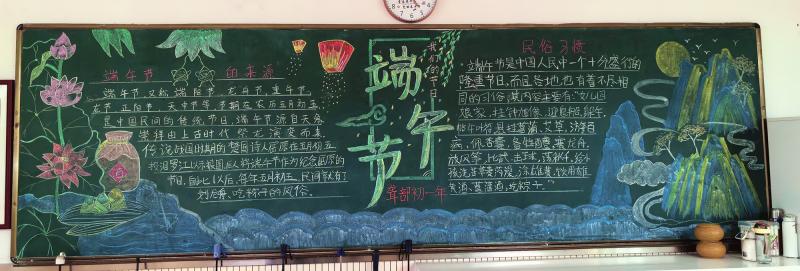 端午节的来源
端午节,又称端阳节、龙舟节、重午节、
龙节、正阳节、天中节等,节期在农历五月初五,
是中国民间的传统节日。端午节源自天象
崇拜,由上古时代祭龙演变而来。
传说战国时期的楚国诗人屈原在五月初五
跳汨罗江
后人将端午节作为纪念屈原的
节日。自此以后,每年五月初五,民间就有了
划龙舟、吃粽子的风俗。
我们的节日
端午节
聋部初一年
民俗习惯
端午节是中国人民中一个十分盛行的
隆重节日,而且各地也有着不尽相
同的习俗。其内容主要有:女儿回
娘家,挂钟馗像,迎鬼船、躲午,
帖午叶符,悬挂菖蒲、艾草,游百
病,佩香囊,备牲醴,赛龙舟,